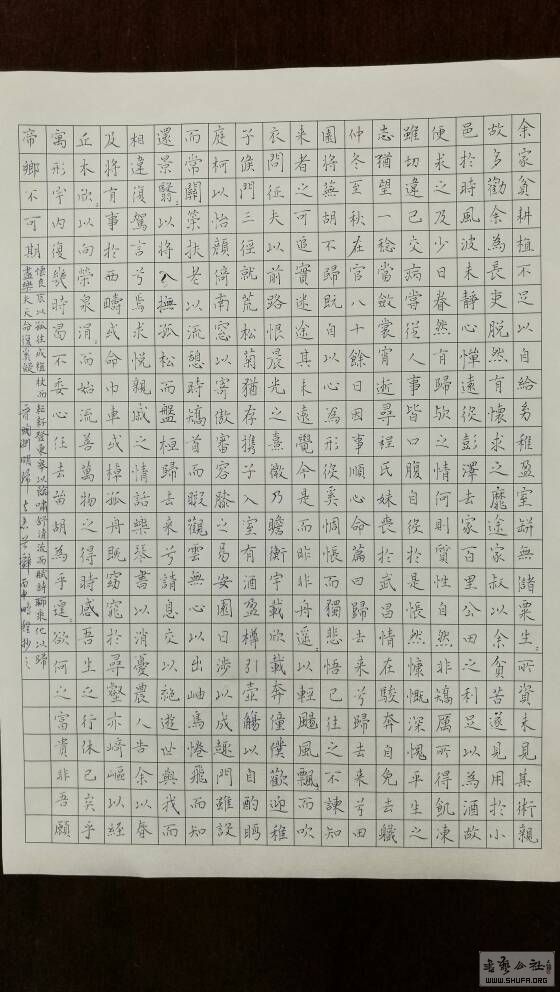 余家貧耕植不足以自給幼稚盈室缾無儲粟生所資未見其術親
故多勸余為長吏脫然有懷求之靡途家叔以余貧苦遂見用於小
邑於時風波未靜心憚遠役彭澤去家百里公田之利足以為酒故
便求之及少日眷然有歸歟之情何則質性自然非矯厲所得飢凍
雖切違己交病嘗從人事皆口腹自役於是悵然慷慨深愧平生之
志猶望一稔當斂裳宵逝尋程氏妹喪於武昌情在駿奔自免去職
仲冬至秋在官八十餘日因事順心命篇曰歸去來兮歸去來兮田
園將蕪胡不歸既自以心為形役奚惆悵而獨悲悟已往之不諫知
來者之可追實迷途其未遠覺今是而昨非舟遙以輕颺風飄而吹
衣問征夫以前路恨晨光之熹微乃瞻衡宇載欣載奔僮僕歡迎稚
子候門三徑就荒松菊猶存攜子入室有酒盈樽引壺觴以自酌眄
庭柯以怡顏倚南窓以寄傲審容膝之易安園日涉以成趣門雖設
而常關策扶老以流憩時矯首而遐觀雲無心以出岫鳥倦飛而知
還景翳以將入撫孤松而盤桓歸去來兮請息交以絕遊世與我而
相違復駕言兮焉求悅親戚之情話樂琴書以消憂農人告余以春
及將有事於西疇或命巾車或棹孤舟既窈窕於尋壑亦崎嶇以經
丘木欣以向榮泉涓而始流善萬物之得時感吾生之行休已矣乎
寓形宇內復幾時曷不委心任去留胡為乎遑欲何之富貴非吾願
帝鄉不可期
懷良辰以孤往或植杖而耘耔登東皋以臨嘯舒清流而賦詩聊乘化以歸
盡樂夫天命復奚疑
書法公社
WWW.SHUFA.ORG